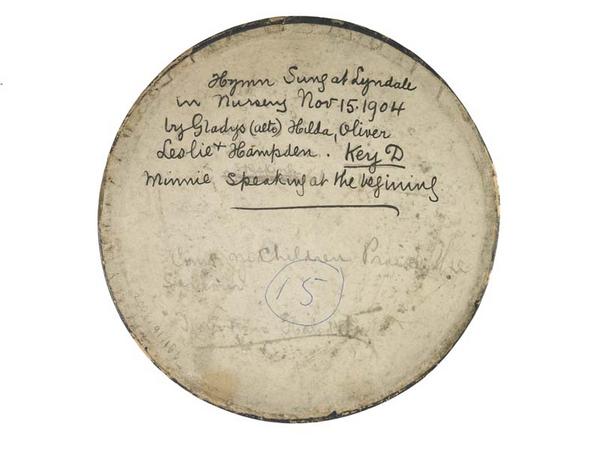 Hymn Sung at Lyndale
in Nursery Nov 15. 1904
by Gladys (alto) Hilda, Oliver
Leslie + Hampden. Key D
Minnie speaking at the begining
Children Praise
15